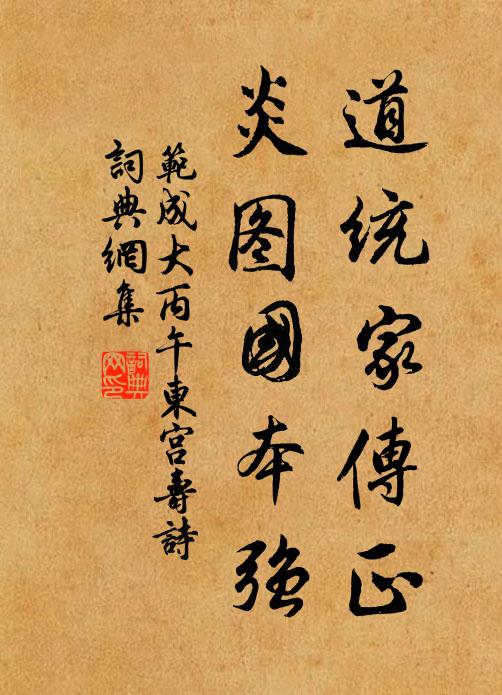 道統家傳正
炎图國本强
範成大丙午東宮壽詩
詞典網集
詞典网印